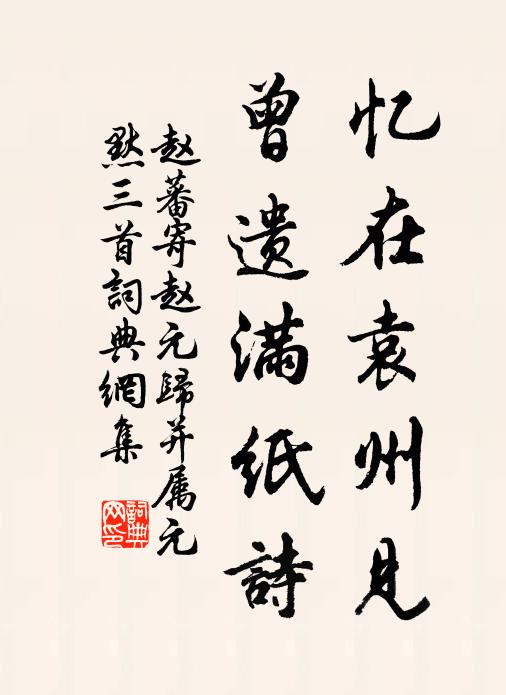 忆在袁州见
曾遗满纸詩
赵蕃寄赵元歸并属元
默三首詞典網集
詞典
网印